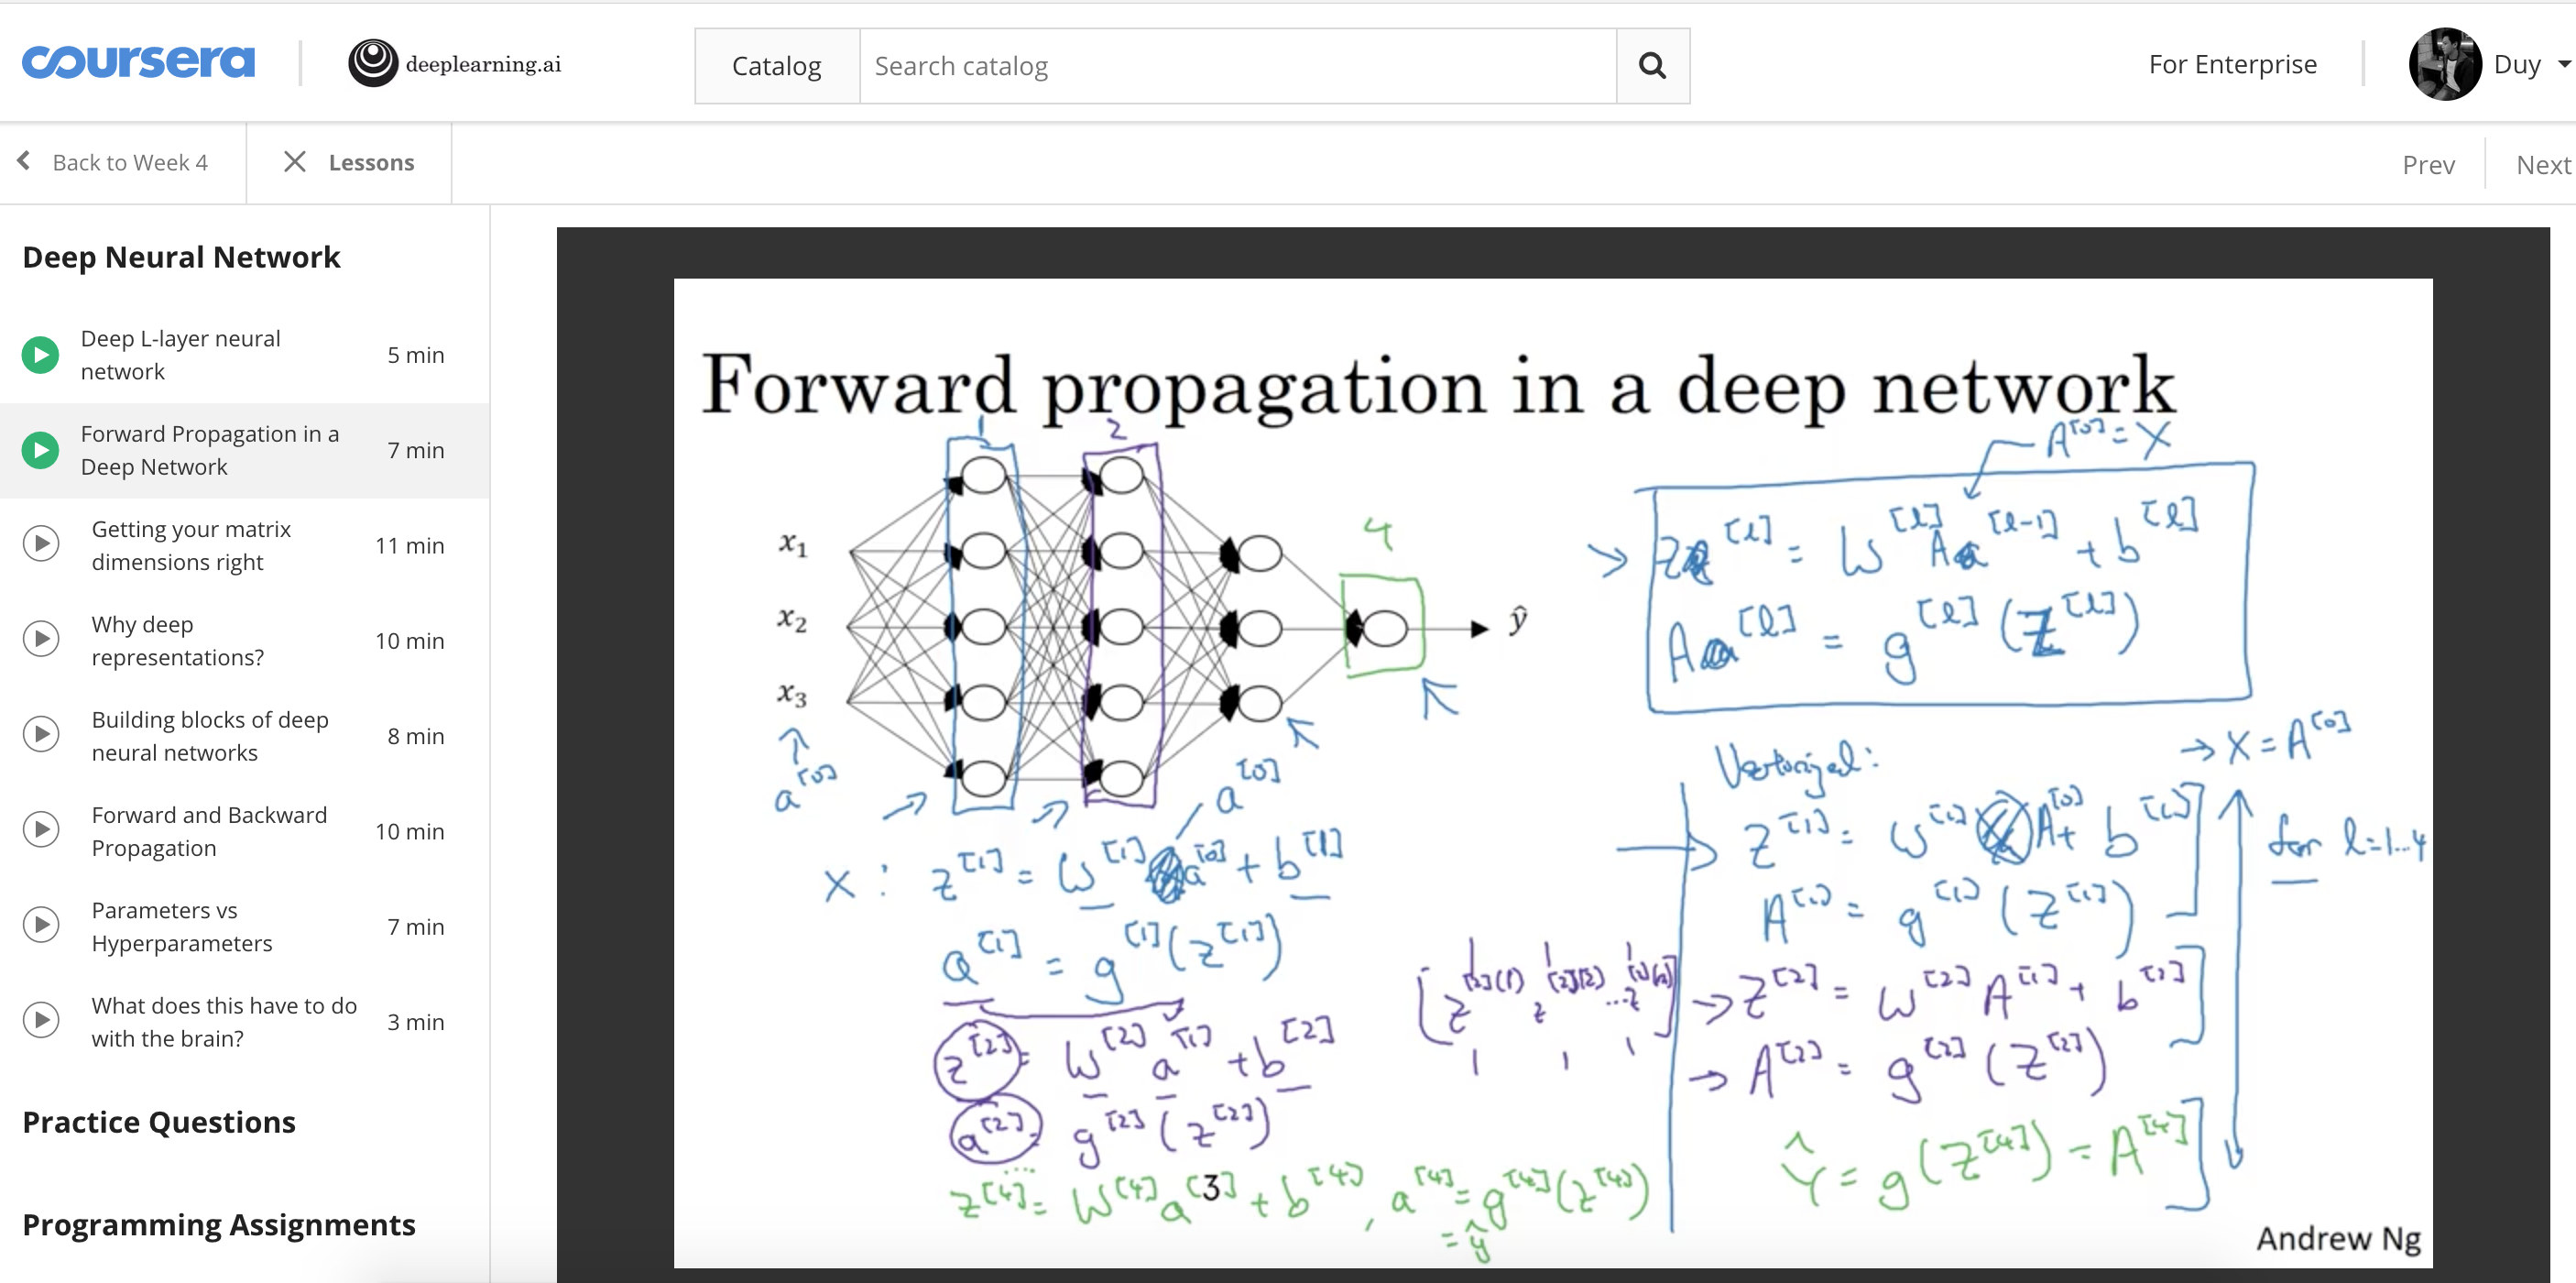 coursera
deeplearning.ai
Catalog
Search catalog
For Enterprise
Duy
Back to Week 4
Lessons
Prev
Next
Deep Neural Network
Deep L-layer neural
network
5 min
Forward Propagation in a
Deep Network
7 min
Getting your matrix
dimensions right
11 min
Why deep
representations?
10 min
Building blocks of deep
neural networks
8 min
Forward and Backward
Propagation
10 min
Parameters vs
Hyperparameters
7 min
What does this have to do
with the brain?
3 min
Practice Questions
Programming Assignments
Forward propagation in a deep network
1
2
4
x₁
x₂
x₃
ŷ
a^[0]
a^[0]
X : z^[1] = W^[1] a^[0] + b^[1]
a^[1] = g^[1](z^[1])
z^[2] = W^[2] a^[1] + b^[2]
a^[2] = g^[2](z^[2])
...
z^[4] = W^[4] a^[3] + b^[4], a^[4] = g^[4](z^[4])
= ŷ
A^[0] = X
Z^[l] = W^[l] A^[l-1] + b^[l]
A^[l] = g^[l](Z^[l])
Vectorized:
→ X = A^[0]
Z^[1] = W^[1] A^[0] + b^[1]
A^[1] = g^[1](Z^[1])
for l=1..4
[z^[2](1) z^[2](2) ...z^[2](m)]
→ Z^[2] = W^[2] A^[1] + b^[2]
→ A^[2] = g^[2](Z^[2])
Ŷ = g(Z^[4]) = A^[4]
Andrew Ng